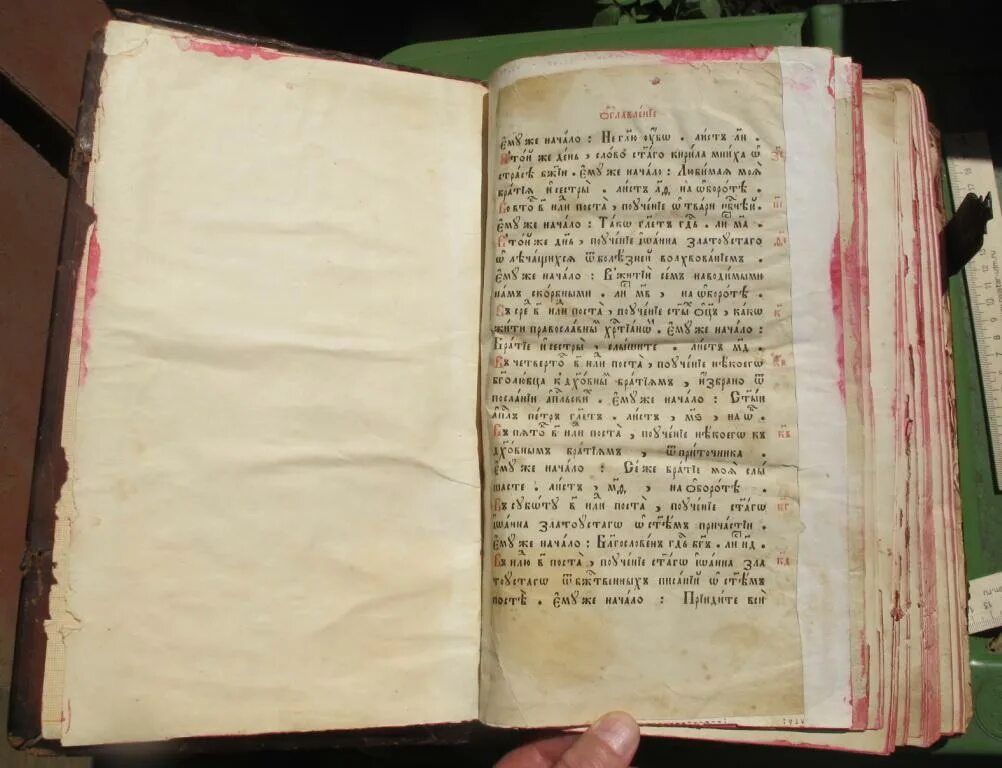 Ѻглавленїе
Ємꙋ же начало : Не глю ѹбѡ . листъ ли .
В той же день , слово ст҃аго кирила мниха ѡ
страсѣ бж҃їи . Ємꙋ же начало : Любимая моѧ
братїѧ и҆ сестры . листъ л҃д , на ѡборотѣ .
Во вто в҃ нⷣли поста , поученїе ѡ твари
Ємꙋ же начало : Такѡ гл҃етъ гд҃ь . ли м҃а .
В той же дн҃ь , поученїе їѡанна златоустаго
ѡ лѣчащихсѧ ѿ болѣзней волхвованїемъ .
Ємꙋ же начало : В житїи семъ наводимыми
намъ скорбными . ли м҃в , на ѡборотѣ .
Въ сре в҃ нⷣли поста , поученїе ст҃ы ѻц҃ъ , какѡ
жити православны хр҃тїанѡ . Ємꙋ же начало :
Братїе и҆ сестры , слышите . листъ м҃д .
Въ четверто в҃ нⷣли поста , поученїе нѣкоегѡ
бг҃олюбца к дх҃овны братїѧмъ , и҆збрано ѿ
посланїи ап҃льски . Ємꙋ же начало : Ст҃ыи
ап҃лъ петръ гл҃етъ . листъ , м҃ѕ , на ѡ .
Въ пѧто в҃ нⷣли поста , поученїе нѣкоегѡ къ
дх҃овнымъ братїѧмъ , ѿ приточника .
Ємꙋ же начало : Се же братїе моѧ слы
шасте . листъ , м҃д , на ѡборотѣ .
Въ субѡту в҃ нⷣли поста , поученїе ст҃агѡ
їѡанна златоустагѡ ѡ ст҃ѣмъ причастїи .
Ємꙋ же начало : Бл҃гословенъ гд҃ь бг҃ъ . ли н҃д .
Въ нⷣлю в҃ поста , поученїе ст҃агѡ їѡанна зла
тоустагѡ ѿ бж҃твенныхъ писанїй ѡ ст҃ѣмъ
постѣ . Ємꙋ же начало : Прїидите вси
к҃
к҃в
к҃г
к҃д